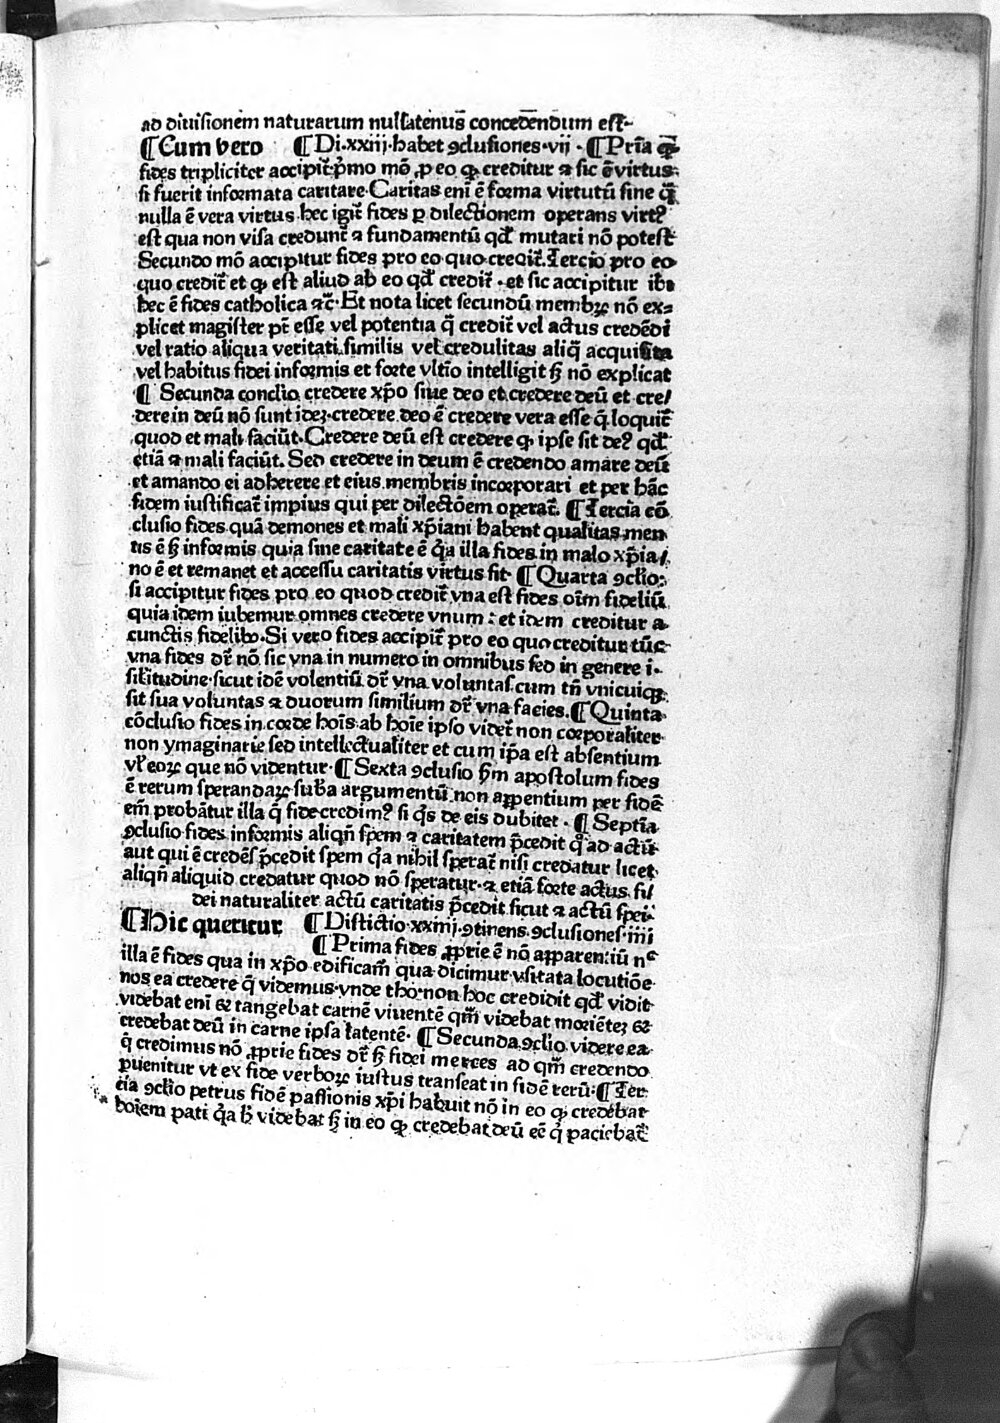 ad diuisionem naturarum nullatenus̄ concedēndum est-
¶Cum vero ¶Di.xxiij.habet ꝯclusiones.vij. ¶Prīa ꝙ̄
fides tripliciter accipit̄.p̄mo mō ꝓ eo ꝙ creditur ⁊ sic ē virtus
si fuerit informata caritate.Caritas enī ē forma virtutū sine q̄
nulla ē vera virtus.hec igit̄ fides ꝑ dilectionem operans virtꝰ
est qua non visa credunt̄ ⁊ fundamentū qd̄ mutari nō potest
Secundo mō accipitur fides pro eo quo credit̄.Tercio pro eo
quo credit̄ et ꝙ est aliud ab eo qd̄ credit̄.et sic accipitur ibi
hec ē fides catholica ⁊c̄.Et nota licet secundū membꝝ nō ex=
plicet magister pt̄ esse vel potentia q̄ credit̄ vel actus credēdi
vel ratio aliqua veritati.similis vel credulitas aliq̄ acquisita
vel habitus fidei informis et forte vltīo intelligit sꝫ nō explicat
¶ Secunda conclio credere xp̄o siue deo et credere deū et cre/
dere in deū nō sunt ideꝫ.credere deo ē credere vera esse q̄ loquit̄
quod et mali faciūt.Credere deū est credere ꝙ ipse sit deꝰ qd̄
etiā ⁊ mali faciūt. Sed credere in deum ē credendo amare deū
et amando ei adherere et eius membris incorporari et per hāc
fidem iustificat̄ impius qui per dilectōem operat̄. ¶Tercia cō
clusio fides quā demones et mali xp̄iani habent qualitas men
tis ē sꝫ informis quia sine caritate ē q̄a illa fides in malo xp̄ia/
no ē et remanet et accessu caritatis virtus fit. ¶Quarta ꝯclio:
si accipitur fides pro eo quod credit̄ vna est fides oīm fideliū
quia idem iubemur omnes credere vnum : et idem creditur a
cunctis fidelibꝰ.Si vero fides accipit̄ pro eo quo creditur tūc
vna fides dr̄ nō sic vna in numero in omnibus sed in genere i.
silitudine.sicut idē volentiū dr̄ vna voluntas.cum tn̄ vnicuiqꝫ
sit sua voluntas ⁊ duorum similium dr̄ vna facies.¶Quinta
cōclusio fides in corde hoīs ab hoīe ipso videt̄ non corporaliter
non ymaginarie sed intellectualiter et cum ip̄a est absentium
vl̄ eoꝝ que nō videntur. ¶Sexta ꝯclusio sm̄ apostolum fides
ē rerum sperandaꝝ suba argumentū non apparentium per fidē
em̄ probātur illa q̄ fide credimꝰ si q̄s de eis dubitet . ¶ Septīa
ꝯclusio fides informis aliqn̄ spem ⁊ caritatem p̄cedit q̄ ad actū
aut qui ē credēs p̄cedit spem q̄a nihil sperat̄ nisi credatur licet
aliqn̄ aliquid credatur quod nō speratur.⁊ etiā forte actus fi/
dei naturaliter actū caritatis p̄cedit sicut ⁊ actū spei.
¶Hic queritur ¶Distictio.xxiiij.ꝯtinens.ꝯclusiones.iiij
¶Prima fides ꝓprie ē nō apparentiū nᶜ
illa ē fides qua in xp̄o edificam̄ qua dicimur vsitata locutiōe
nos ea credere q̄ videmus.vnde tho.non hoc credidit qd̄ vidit
videbat enī ⁊ tangebat carnē viuentē qm̄ videbat moriēteꝫ ⁊
credebat deū in carne ipsa latentē. ¶Secunda.ꝯclio videre ea
q̄ credimus nō ꝓprie fides dr̄ sꝫ fidei merces ad qm̄ credendo
puenitur vt ex fide verboꝝ iustus transeat in fidē rerū.¶Ter
cia ꝯclio petrus fidē passionis xp̄i habuit nō in eo ꝙ credebat
hoīem pati q̄a h̄ videbat sꝫ in eo ꝙ credebat deū eē q̄ paciebat̄